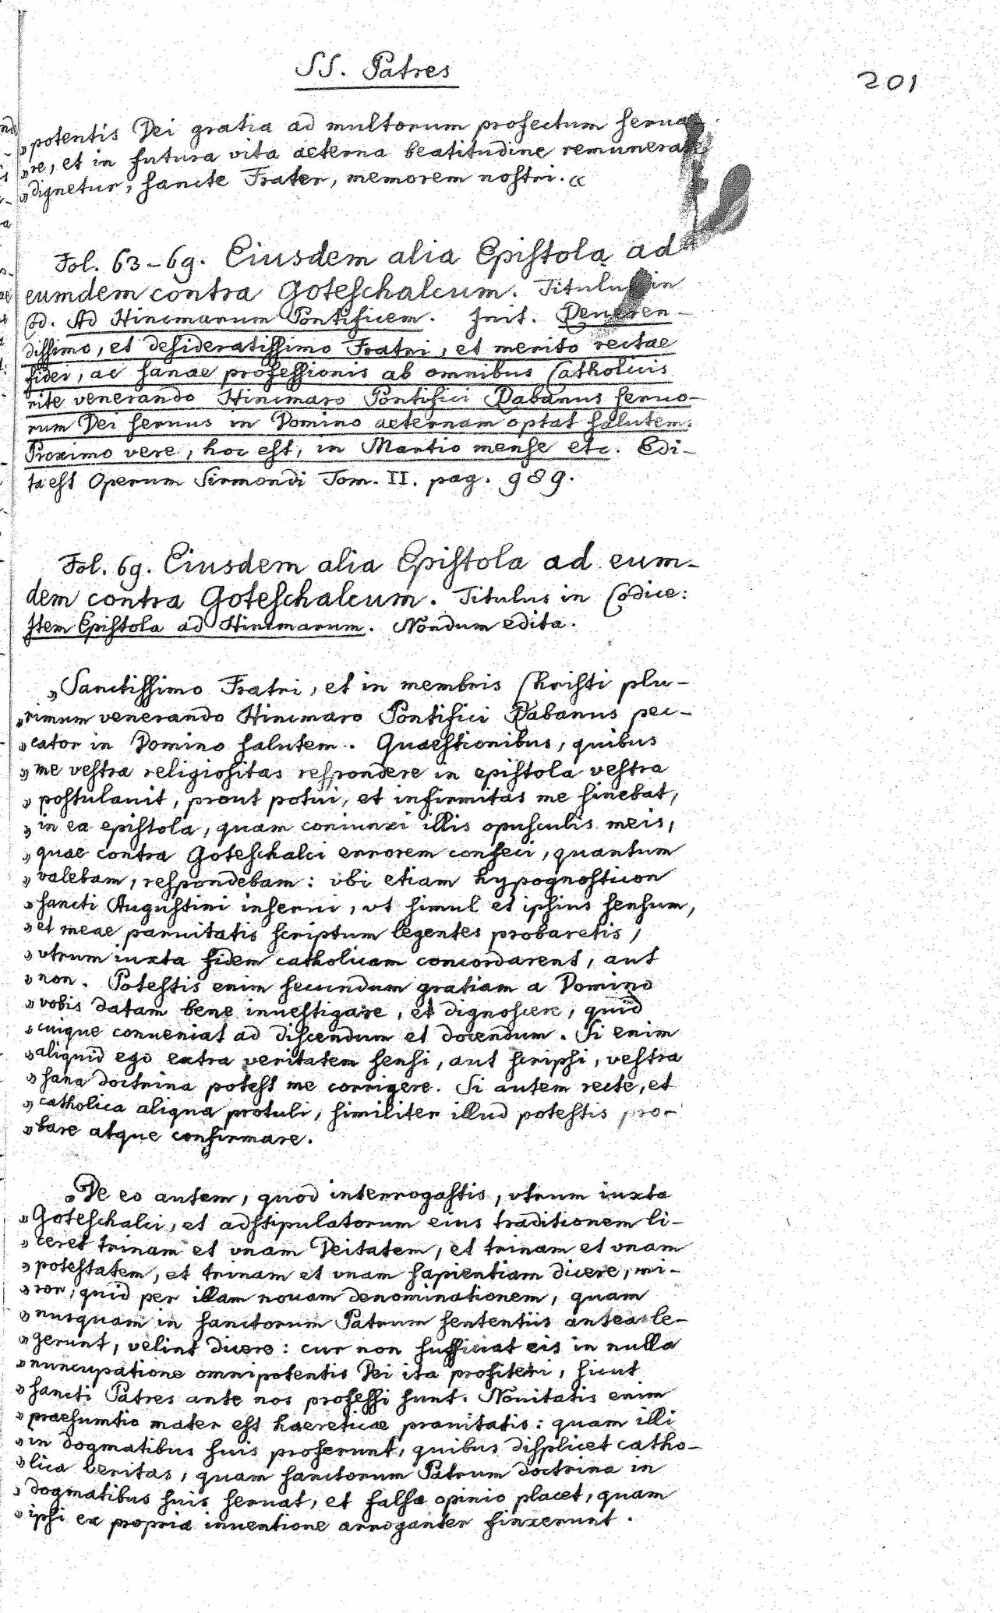 SS. Patres
201
„potentis Dei gratia ad multorum profectum serua
„re, et in futura vita aeterna beatitudine remunerare
„dignetur, sancte Frater, memorem nostri.“
Fol. 63-69. Eiusdem alia Epistola ad
eumdem contra Goteschalcum. Titulus in
Cod. Ad Hincmarum Pontificem. Init. Reueren-
dissimo, et desideratissimo Fratri, et merito rectae
fidei, ac sanae professionis ab omnibus Catholicis
rite venerando Hincmaro Pontifici Rabanus seruo-
rum Dei seruus in Domino aeternam optat salutem.
Proximo vere, hoc est, in Martio mense etc. Edi-
ta est Operum Sirmondi Tom. II. pag. 989.
Fol. 69. Eiusdem alia Epistola ad eum-
dem contra Goteschalcum. Titulus in Codice:
Item Epistola ad Hincmarum. Nondum edita.
„Sanctissimo Fratri, et in membris Christi plu-
„rimum venerando Hincmaro Pontifici Rabanus pec-
„cator in Domino salutem. Quaestionibus, quibus
„me vestra religiositas respondere in epistola vestra
„postulauit, prout potui, et infirmitas me sinebat,
„in ea epistola, quam coniunxi illis opusculis meis,
„quae contra Goteschalci errorem confeci, quantum
„valebam, respondebam: vbi etiam hypognosticon
„sancti Augustini inserui, vt simul et ipsius sensum,
„et meae paruitatis scriptum legentes probaretis,
„vtrum iuxta fidem catholicam concordarent, aut
„non. Potestis enim secundum gratiam a Domino
„vobis datam bene inuestigare, et dignoscere, quid
„cuique conueniat ad discendum et docendum. Si enim
„aliquid ego extra veritatem sensi, aut scripsi, vestra
„sana doctrina potest me corrigere. Si autem recte, et
„catholica aliqua protuli, similiter illud potestis pro-
„bare atque confirmare.
„De eo autem, quod interrogastis, vtrum iuxta
„Goteschalci, et adstipulatorum eius traditionem li-
„ceret trinam et vnam Deitatem, et trinam et vnam
„potestatem, et trinam et vnam sapientiam dicere, mi-
„ror, quid per illam nouam denominationem, quam
„nusquam in sanctorum Patrum sententiis antea le-
„gerunt, velint dicere: cur non sufficiat eis in nulla
„nuncupatione omnipotentis Dei ita profiteri, sicut
„sancti Patres ante nos professi sunt. Nouitatis enim
„praesumtio mater est haereticae prauitatis: quam illi
„in dogmatibus suis proferunt, quibus displicet catho-
„lica veritas, quam sanctorum Patrum doctrina in
„dogmatibus suis seruat, et falsa opinio placet, quam
„ipsi ex propria inuentione arroganter finxerunt.